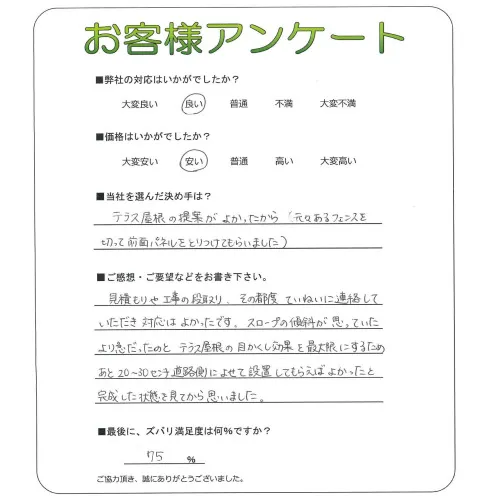 お客様アンケート
■弊社の対応はいかがでしたか？
大変良い 良い 普通 不満 大変不満
■価格はいかがでしたか？
大変安い 安い 普通 高い 大変高い
■当社を選んだ決め手は？
テラス屋根の提案がよかったから（元々あるフェンスを
切って前面パネルをとりつけてもらいました）
■ご感想・ご要望などをお書き下さい。
見積もりや工事の段取り、その都度ていねいに連絡して
いただき対応はよかったです。スロープの傾斜が思っていた
より急だったのとテラス屋根の目かくし効果を最大限にするため
あと20～30センチ道路側によせて設置してもらえばよかったと
完成した状態を見てから思いました。
■最後に、ズバリ満足度は何％ですか？
75 %
ご協力頂き、誠にありがとうございました。